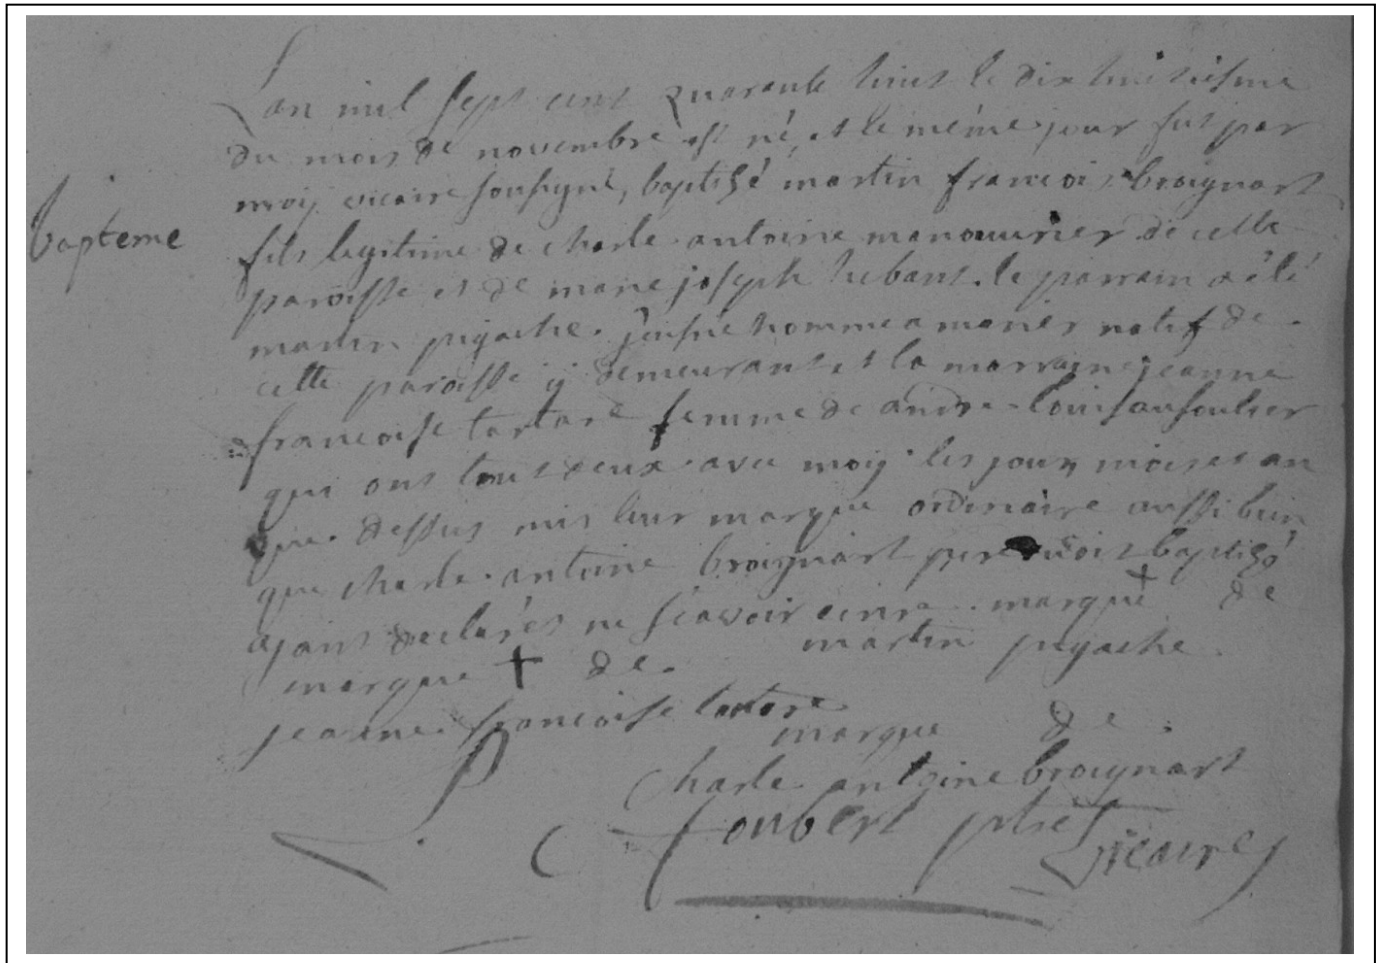 L'an mil sept cent quarante huit le dix huitiesme
du mois de novembre est né, et le même jour fut par
bapteme
moy vicaire soussigné, baptisé martin francois broignart
fils legitime de charle antoine manouvrier de cette
paroisse et de marie joseph hebant. le parrain a été
martin pigache. jeusne homme a marier natif de
cette paroisse y demeurant et la marraine jeanne
francoise tartare femme de andre louis
qui ont tous deux avec moy les jour, mois et an
que dessus mis leur marque ordinaire aussi bien
que charle antoine broignart pere baptisé
ajant declarés ne scavoir ecrire. marque + de
marque + de martin pigache.
jeanne francoise tartare
marque de
charle antoine broignart
Joubert ptre vicaire